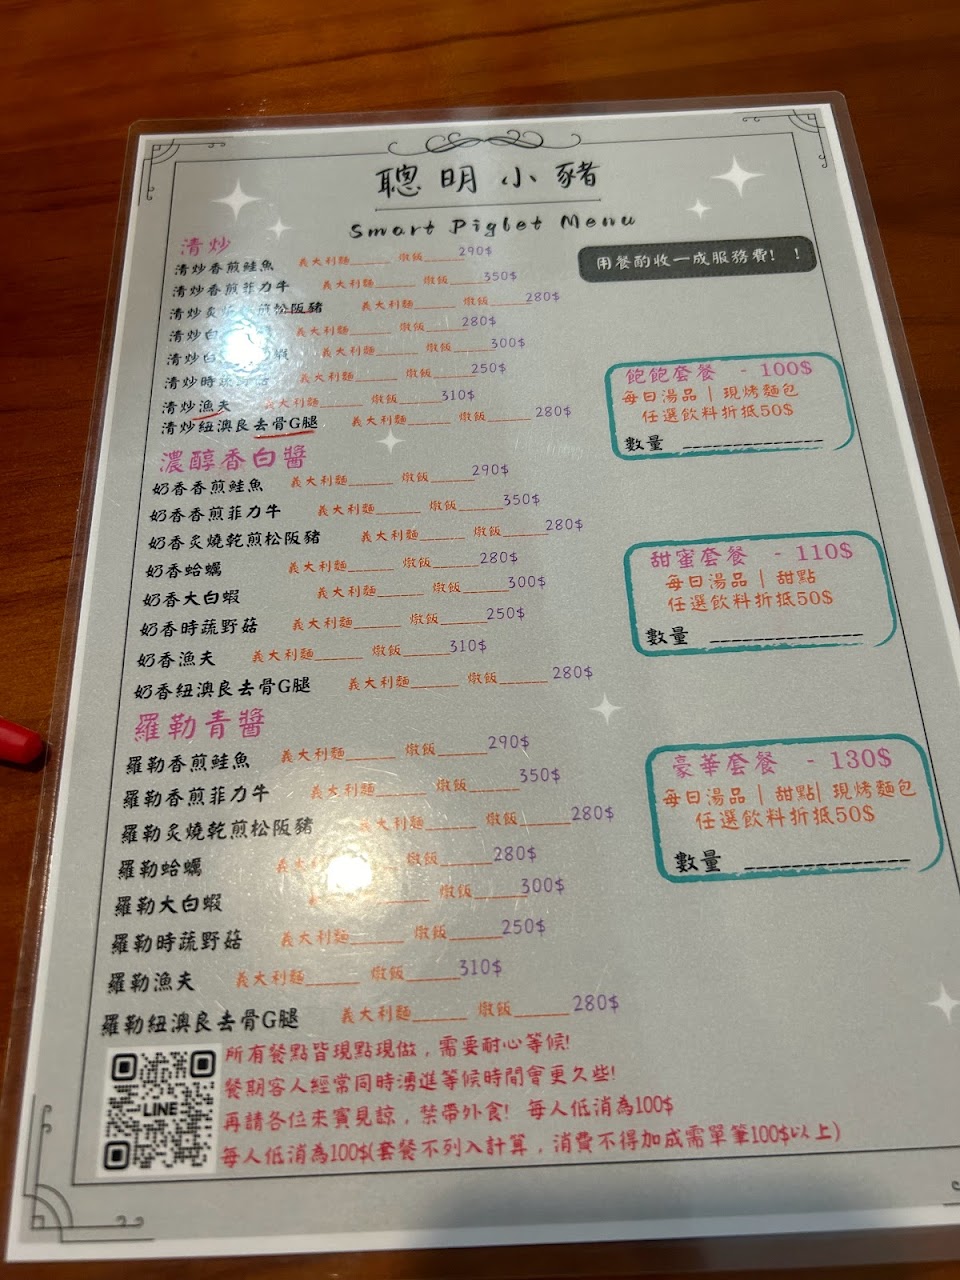 聰明小豬
Smart Piglet Menu
用餐酌收一成服務費! !
清炒
清炒香煎鮭魚 義大利麵______ 燉飯______290$
清炒香煎菲力牛 義大利麵______ 燉飯______350$
清炒炙 煎松阪豬 義大利麵______ 燉飯______280$
清炒白 義大利麵______ 燉飯______280$
清炒 義大利麵______ 燉飯______300$
清炒時蔬野菇 義大利麵______ 燉飯______250$
清炒漁夫 義大利麵______ 燉飯______310$
清炒紐澳良去骨G腿 義大利麵______ 燉飯______280$
濃醇香白醬
奶香香煎鮭魚 義大利麵______ 燉飯______290$
奶香香煎菲力牛 義大利麵______ 燉飯______350$
奶香炙燒乾煎松阪豬 義大利麵______ 燉飯______280$
奶香蛤蠣 義大利麵______ 燉飯______280$
奶香大白蝦 義大利麵______ 燉飯______300$
奶香時蔬野菇 義大利麵______ 燉飯______250$
奶香漁夫 義大利麵______ 燉飯______310$
奶香紐澳良去骨G腿 義大利麵______ 燉飯______280$
羅勒青醬
羅勒香煎鮭魚 義大利麵______ 燉飯______290$
羅勒香煎菲力牛 義大利麵______ 燉飯______350$
羅勒炙燒乾煎松阪豬 義大利麵______ 燉飯______280$
羅勒蛤蠣 義大 燉飯______280$
羅勒大白蝦 燉飯______300$
羅勒時蔬野菇 義大利麵______ 燉飯______250$
羅勒漁夫 義大利麵______ 燉飯______310$
羅勒紐澳良去骨G腿 義大利麵______ 燉飯______280$
飽飽套餐 - 100$
每日湯品 | 現烤麵包
任選飲料折抵50$
數量 ______________
甜蜜套餐 - 110$
每日湯品 | 甜點
任選飲料折抵50$
數量 ______________
豪華套餐 - 130$
每日湯品 | 甜點| 現烤麵包
任選飲料折抵50$
數量 ______________
LINE
所有餐點皆現點現做，需要耐心等候!
餐期客人經常同時湧進等候時間會更久些!
再請各位來賓見諒，禁帶外食! 每人低消為100$
每人低消為100$(套餐不列入計算，消費不得加成需單筆100$以上)